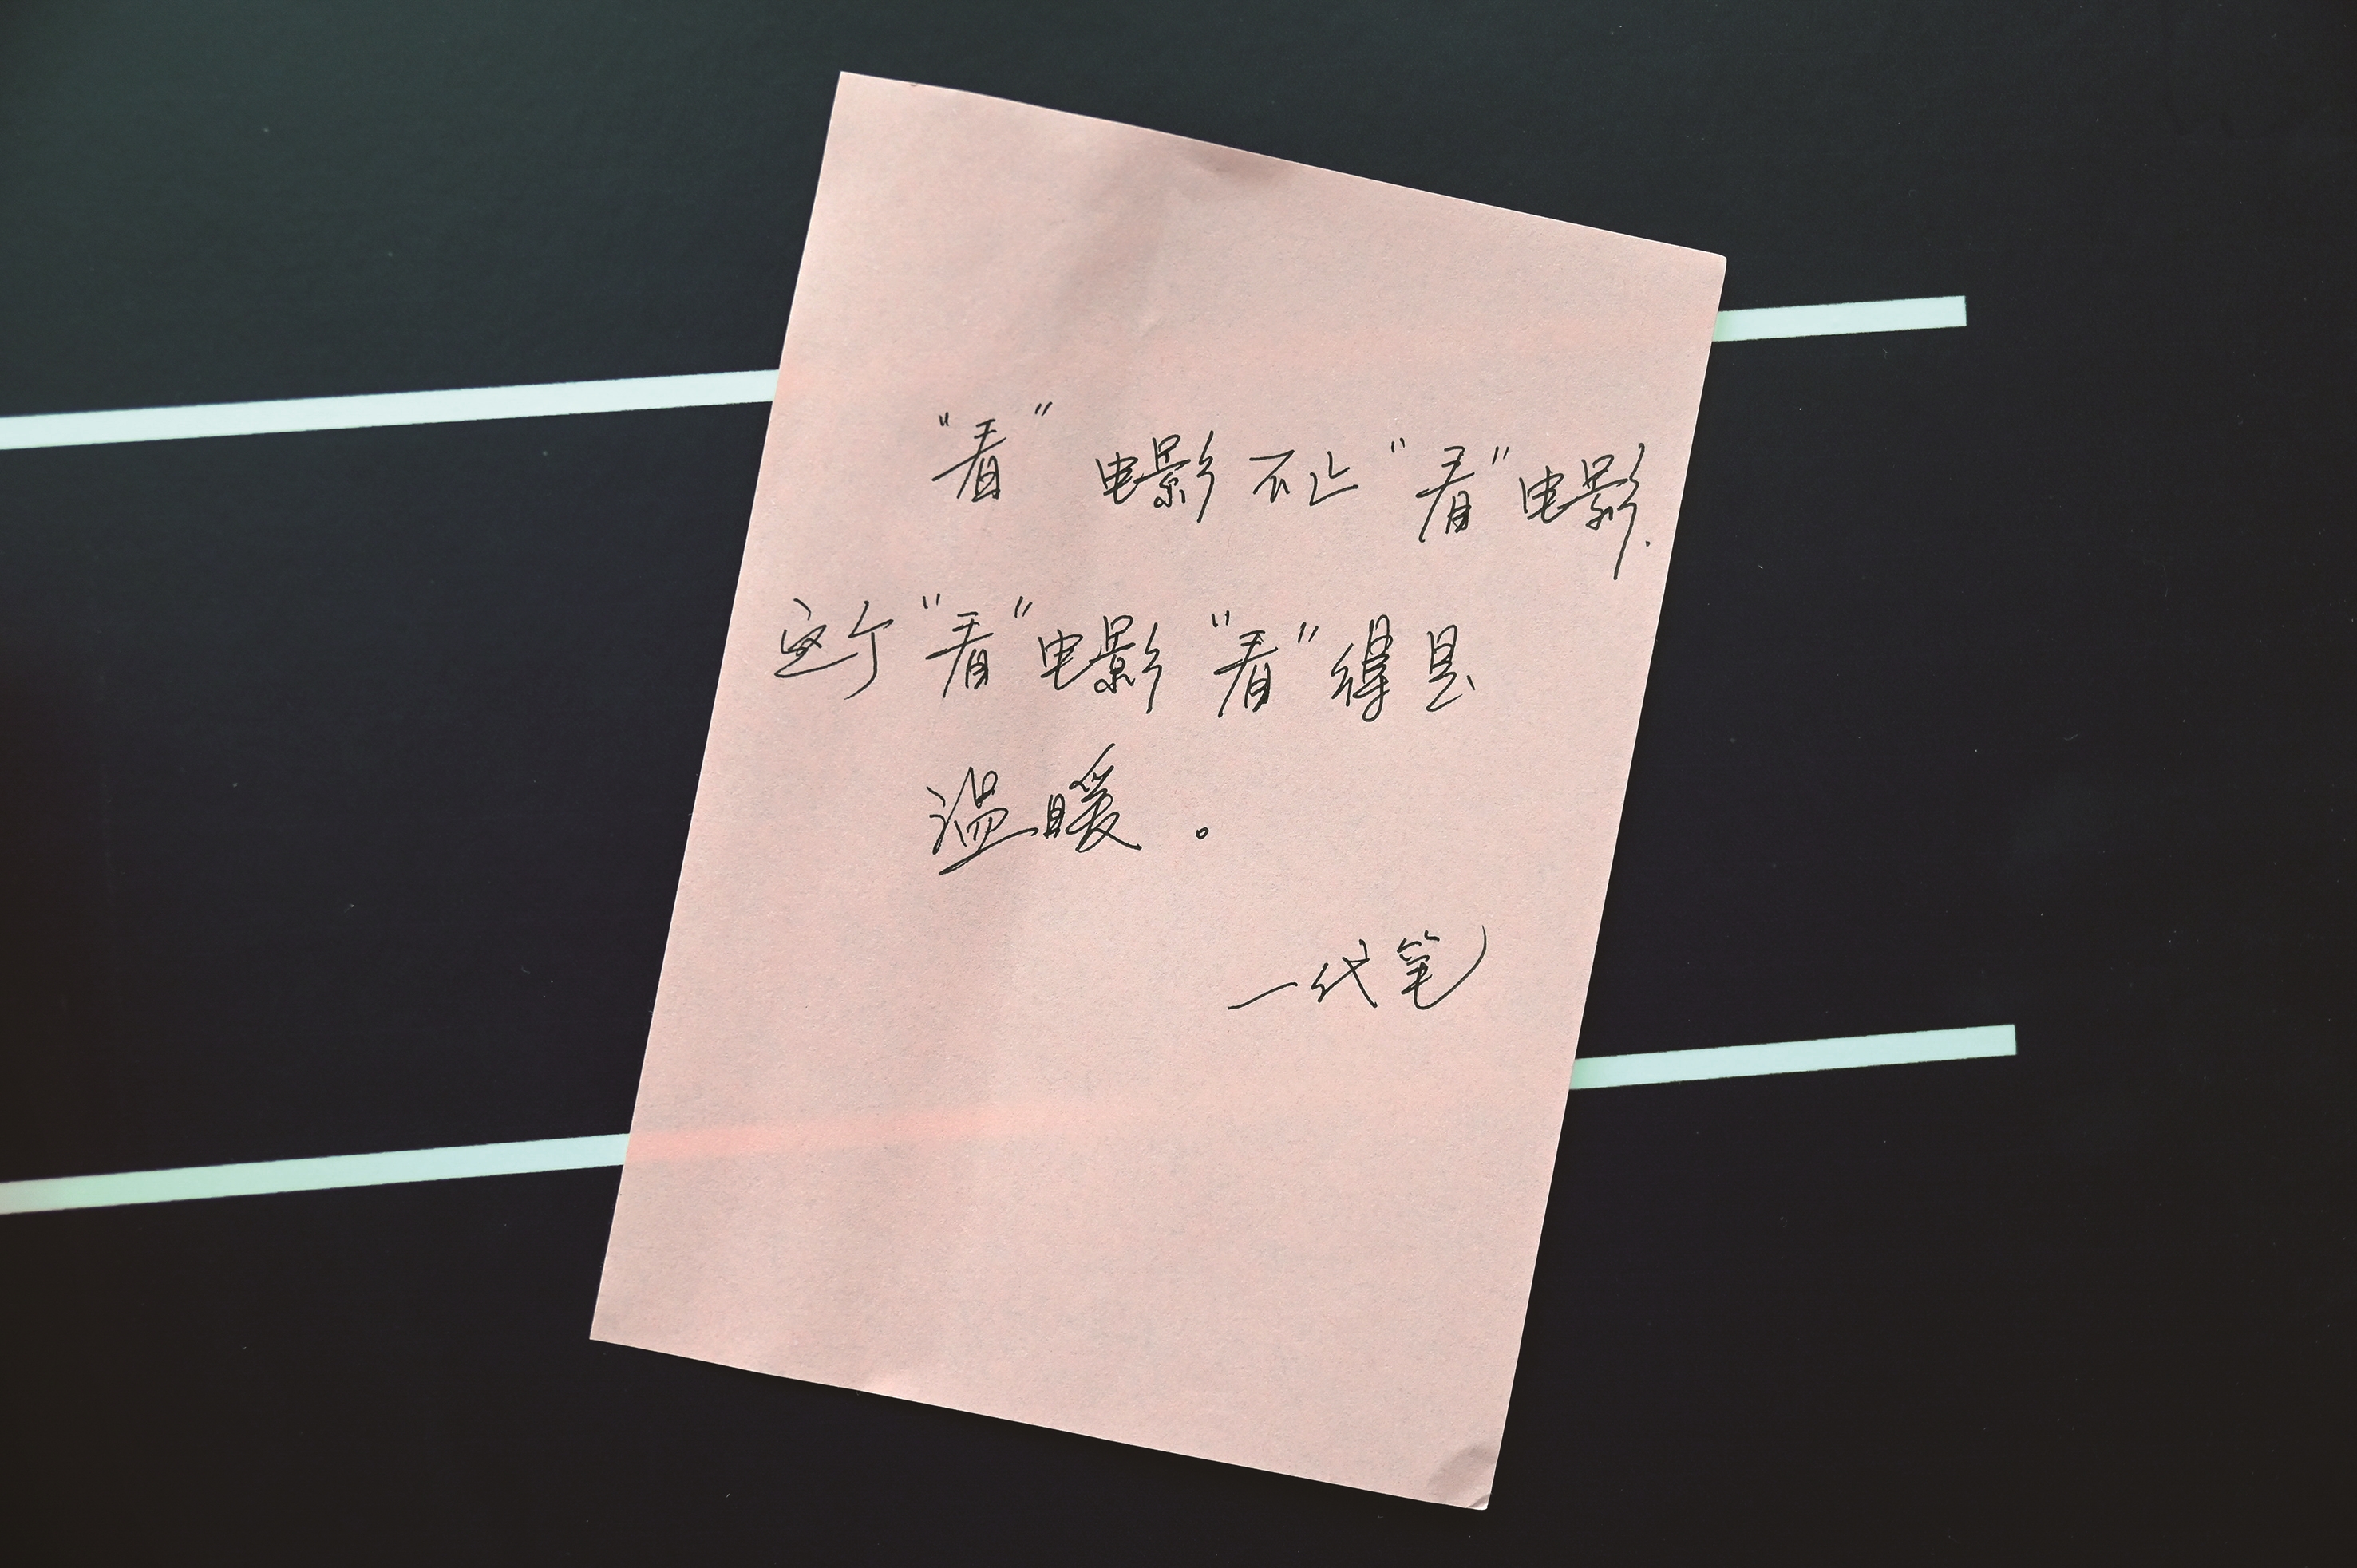 “看”电影不止“看”电影.
这个“看”电影“看”得是
温暖。
—代笔